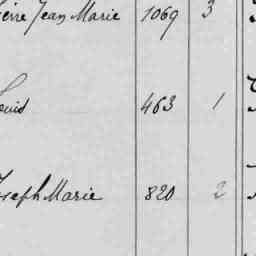 Pierre Jean Marie 1069 3
Louis 463 1
Joseph Marie 820 2